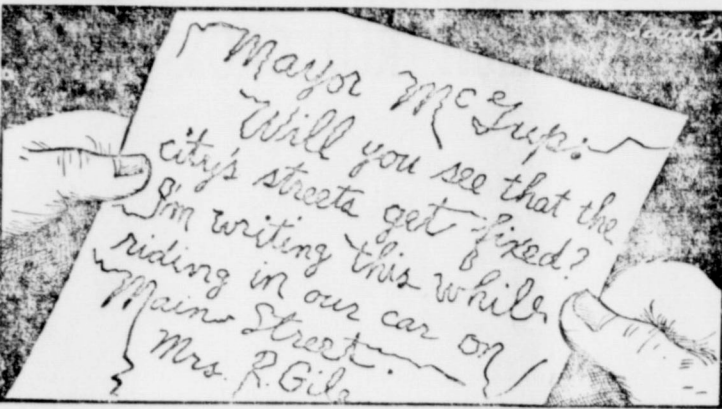 Mayor McGup:
Will you see that the
city's streets get fixed?
I'm writing this while
riding in our car on
Main Street.
Mrs. R. Gile